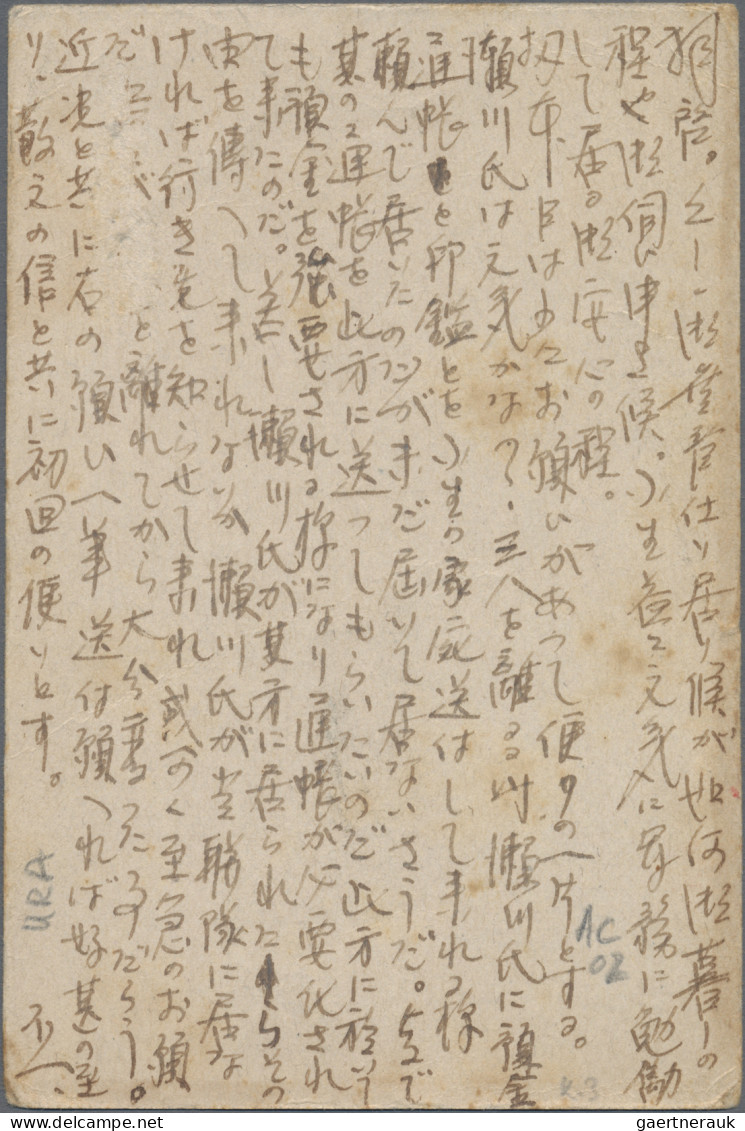 拝啓。久しく御無音仕り居り候が如何御暮しの
程や御伺い申上候。小生益々元気に軍務に勉励
して居る。御安心の程。
扨本日は少々お願いがあって便りの一片とする。
瀬川氏は元気かな?・三八を離るる時瀬川氏に預金
通帳と印鑑とを小生の家庭送付して来れる様
頼んで居いたのだがまだ届いて居ないさうだ。
其の通帳を此方に送ってもらいたいのだ此方に於いて
も預金を強要される様になり通帳が必要化され
て来たのだ。若し瀬川氏が其方に居られたらその
由を傳へて来れないか 瀬川氏が当聯隊に居な
ければ行き先を知らせて来れ 至急のお願
だ と離れてから大分変った事だらう。
近況と共に右の願い一筆送付願へれば好甚の至
り、散文の信と共に初回の便りとす。
不一、
AC
02
URA
K.3
gaertnerauk